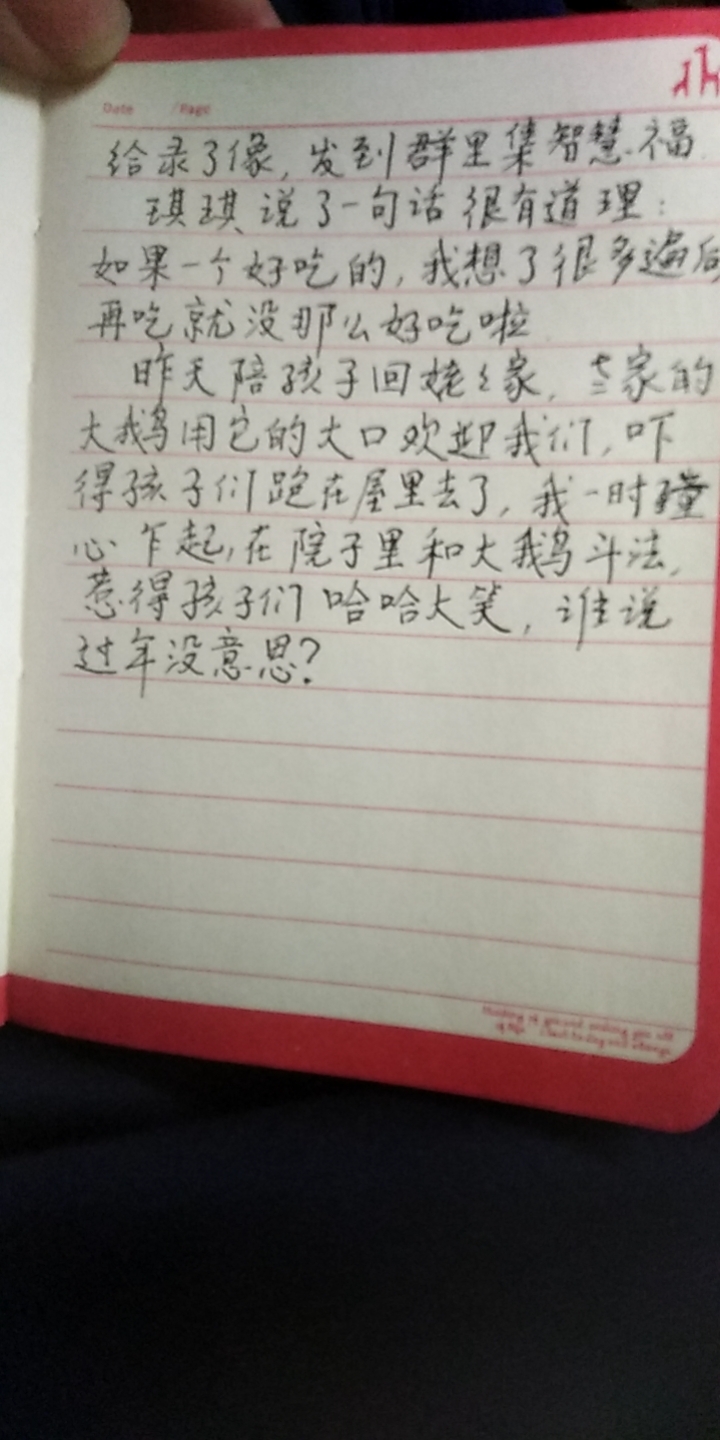 Date /Page
给录了像，发到群里集智慧福.
琪琪说了一句话很有道理：
如果一个好吃的，我想了很多遍后
再吃就没那么好吃啦
昨天陪孩子回姥々家，家的
大鹅用它的大口欢迎我们，吓
得孩子们跑在屋里去了，我一时童
心乍起，在院子里和大鹅斗法，
惹得孩子们哈哈大笑，谁说
过年没意思？